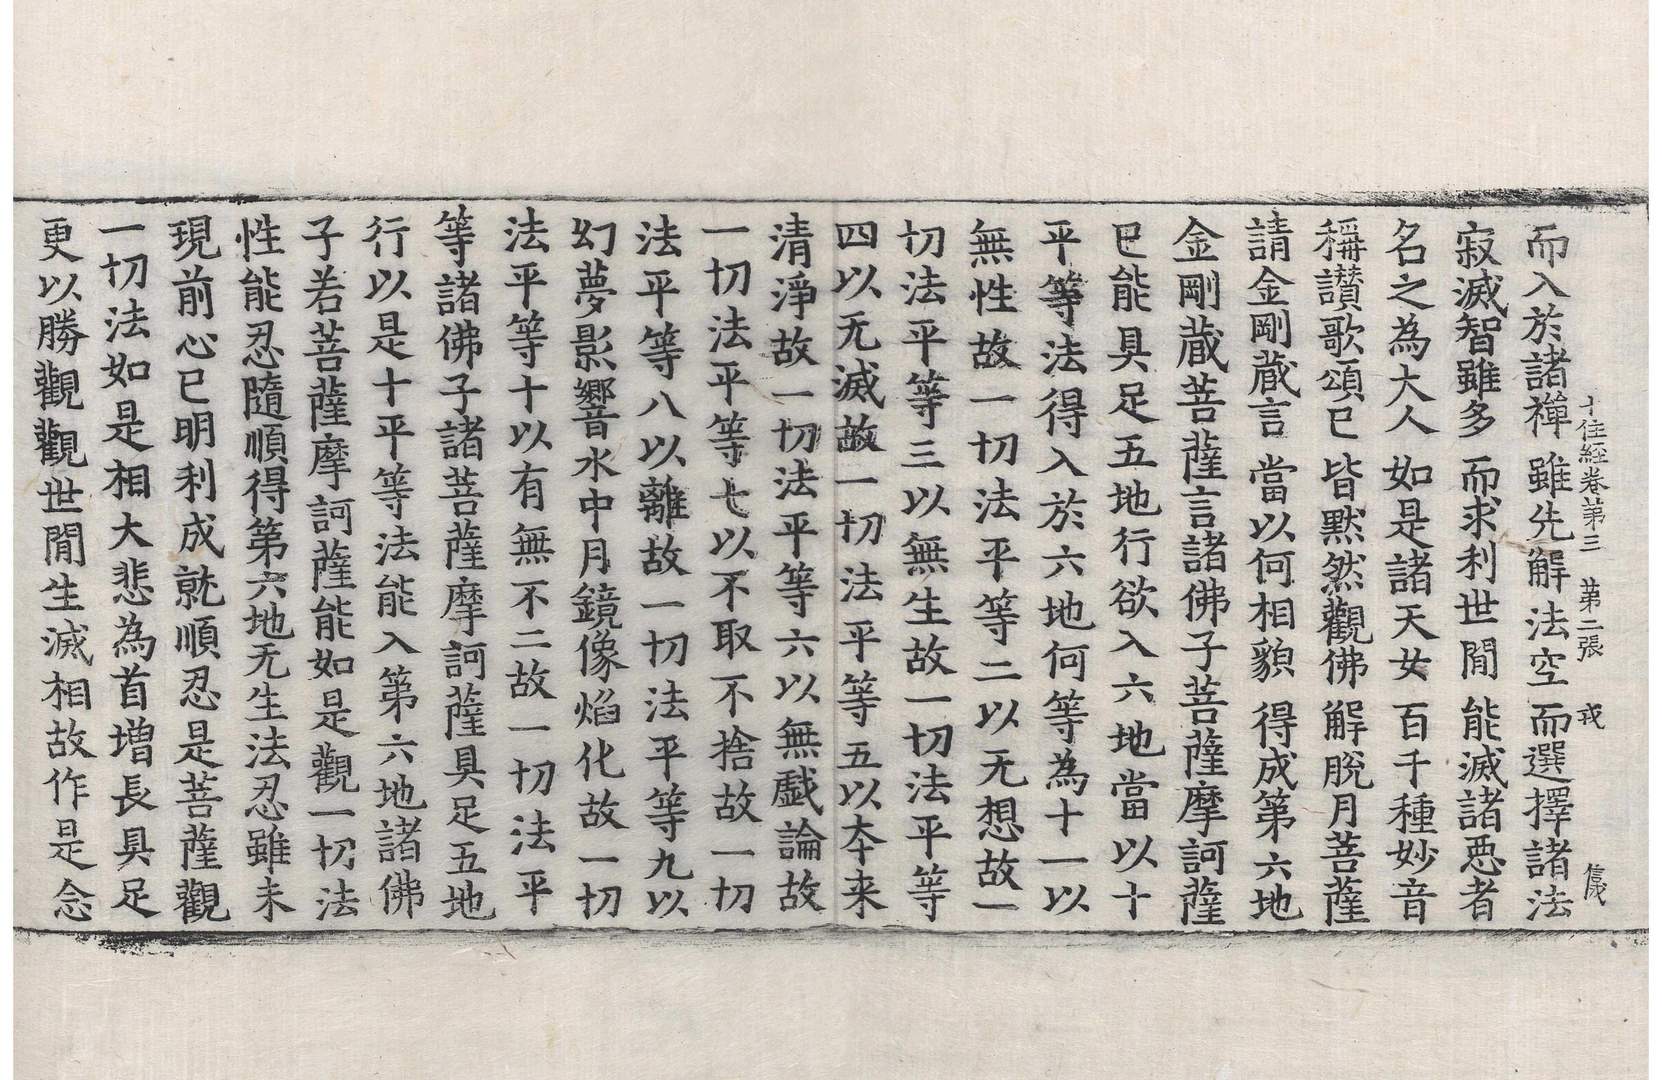 十住經卷第三　第二張　戎　信成
而入於諸禪　雖先解法空　而選擇諸法
寂滅智雖多　而求利世閒　能滅諸惡者
名之為大人　如是諸天女　百千種妙音
稱讃歌頌已　皆默然觀佛　解脫月菩薩
請金剛蔵言　當以何相貌　得成第六地
金剛蔵菩薩言諸佛子菩薩摩訶薩
已能具足五地行欲入六地當以十
平等法得入於六地何等為十一以
無性故一切法平等二以无想故一
切法平等三以無生故一切法平等
四以无滅故一切法平等五以本来
清淨故一切法平等六以無戲論故
一切法平等七以不取不捨故一切
法平等八以離故一切法平等九以
幻夢影響水中月鏡像焰化故一切
法平等十以有無不二故一切法平
等諸佛子諸菩薩摩訶薩具足五地
行以是十平等法能入第六地諸佛
子若菩薩摩訶薩能如是觀一切法
性能忍隨順得第六地无生法忍雖未
現前心已明利成就順忍是菩薩觀
一切法如是相大悲為首增長具足
更以勝觀觀世閒生滅相故作是念